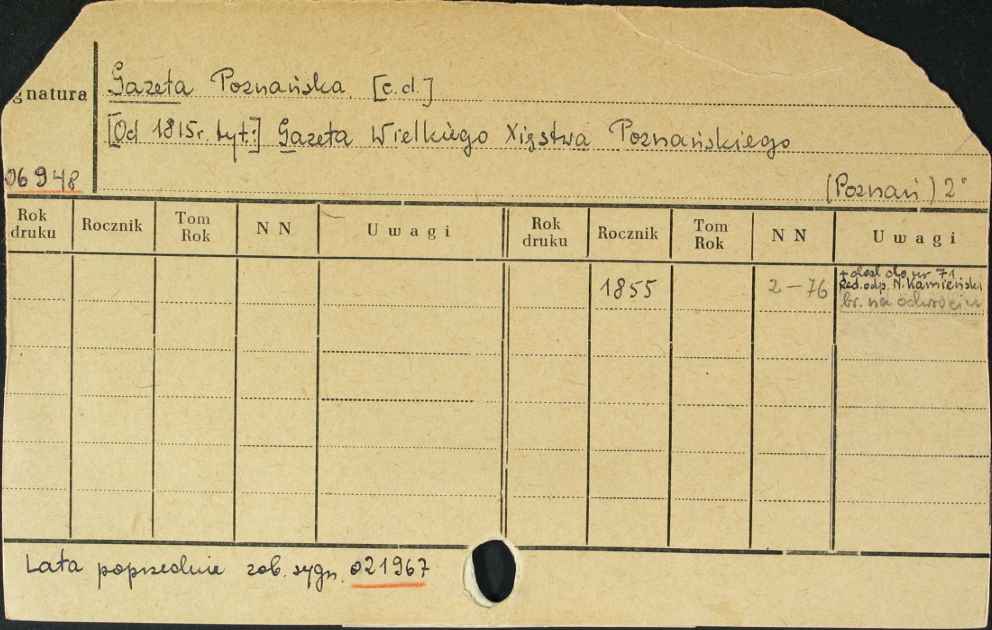 Gazeta Poznańska [c.d.]
gnatura
[Od 1815r. tyt:] Gazeta Wielkiego Xięstwa Poznańskiego
06948
(Poznań) 2°
Rok druku Rocznik Tom Rok N N Uwagi Rok druku Rocznik Tom Rok N N Uwagi
+ dod. do nr 71
1855 2-76 Red. odp. N. Kamieński
br. na odwrocie
Lata poprzednie zob. sygn. 021967